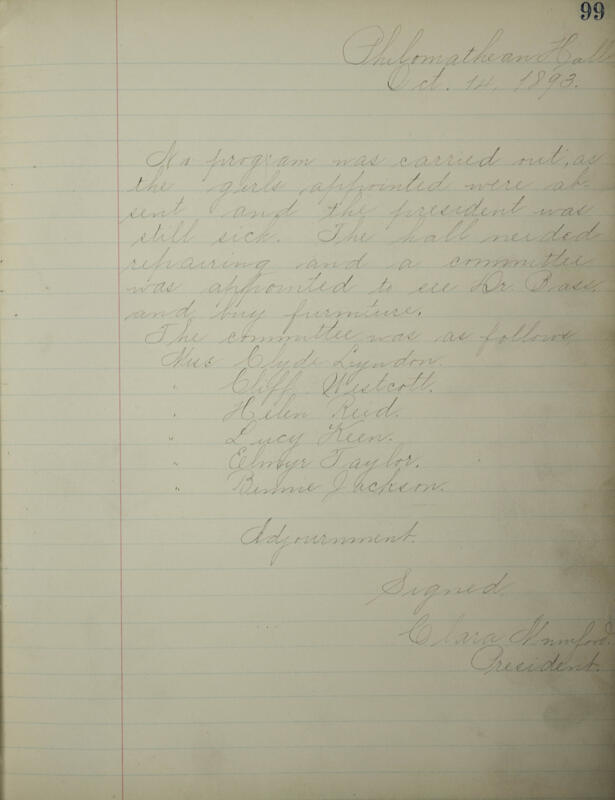 99
Philomathean Hall
Oct. 14, 1893.
No program was carried out, as
the girls appointed were ab-
sent and the president was
still sick. The hall needed
repairing and a committee
was appointed to see Dr. Bass
and buy furniture.
The committee was as follows
Miss Clyde Lyndon.
" Cliff Westcott.
" Helen Reid.
" Lucy Keen.
" Elmyr Taylor.
" Binnie Jackson.
Adjournment.
Signed
Clara
President.